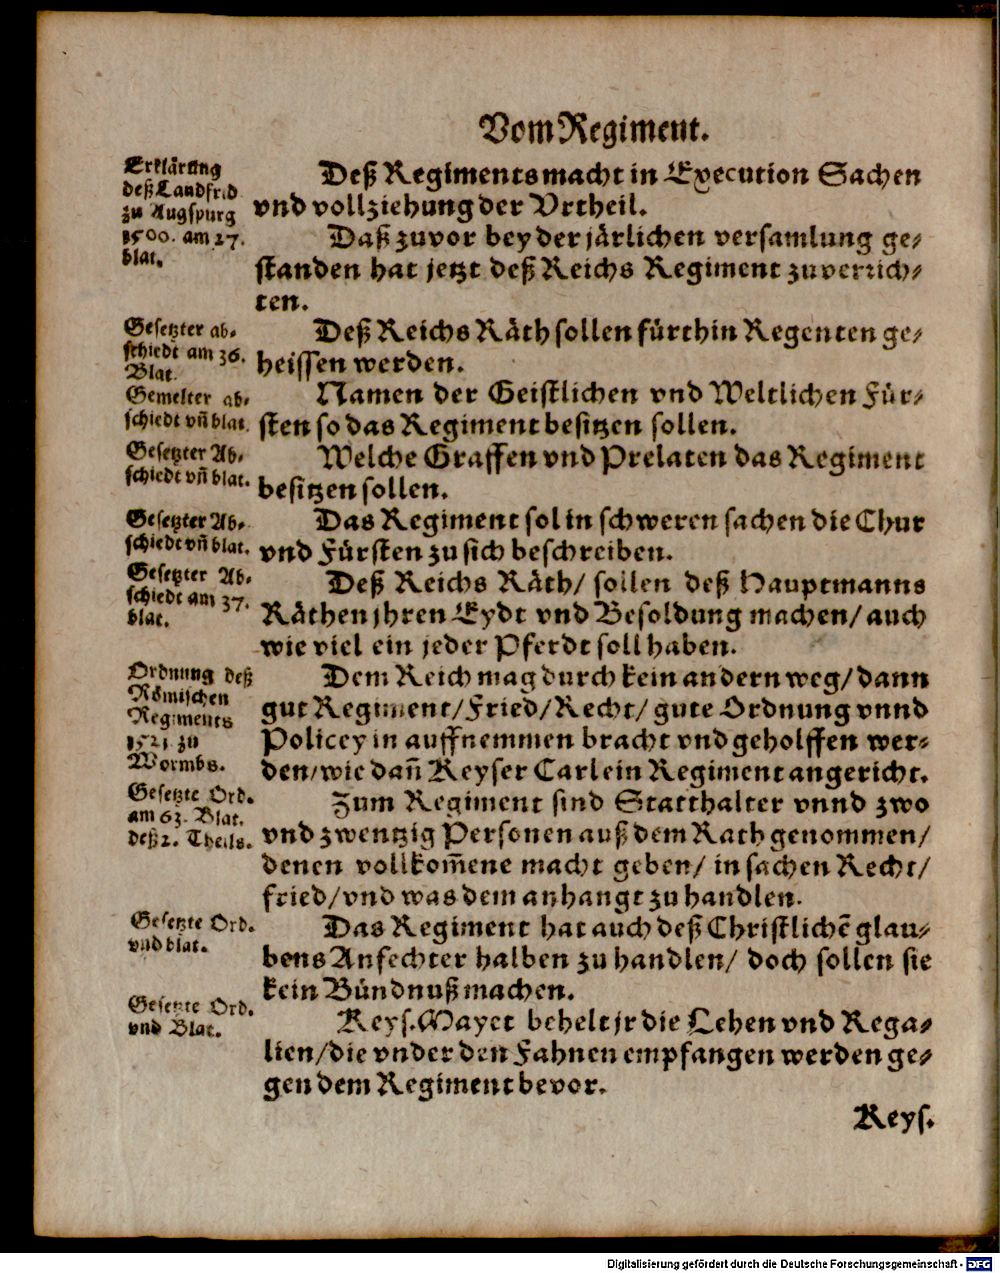 Vom Regiment.
Erklärung
deß Landfrid
zu Augspurg
1500. am 27.
blat.
Deß Regiments macht in Execution Sachen
vnd vollziehung der Vrtheil.
Daß zuvor bey der järlichen versamlung ge-
standen hat jetzt deß Reichs Regiment zuverrich-
ten.
Gesetzter ab-
schiedt am 36.
Blat.
Deß Reichs Räth sollen fürthin Regenten ge-
heissen werden.
Gemelter ab-
schiedt vñ blat.
Namen der Geistlichen vnd Weltlichen Für-
sten so das Regiment besitzen sollen.
Gesetzter Ab-
schiedt vñ blat.
Welche Graffen vnd Prelaten das Regiment
besitzen sollen.
Gesetzter Ab-
schiedt vñ blat.
Das Regiment sol in schweren sachen die Chur
vnd Fürsten zu sich beschreiben.
Gesetzter Ab-
schiedt am 37.
blat.
Deß Reichs Räth/ sollen deß Hauptmanns
Räthen jhren Eydt vnd Besoldung machen/ auch
wie viel ein jeder Pferdt soll haben.
Ordnung deß
Römischen
Regiments
1521 zu
Wormbs.
Dem Reich mag durch kein andern weg/ dann
gut Regiment/ Fried/ Recht/ gute Ordnung vnnd
Policey in auffnemmen bracht vnd geholffen wer-
den/ wie dañ Keyser Carl ein Regiment angericht.
Gesetzte Ord.
am 63. Blat.
deß 2. Theils.
Zum Regiment sind Statthalter vnnd zwo
vnd zwentzig Personen auß dem Rath genommen/
denen vollkom̄ene macht geben/ in sachen Recht/
fried/ vnd was dem anhangt zu handlen.
Gesetzte Ord.
vnd blat.
Das Regiment hat auch deß Christlichẽ glau-
bens Anfechter halben zu handlen/ doch sollen sie
kein Bündnuß machen.
Gesetzte Ord.
vnd Blat.
Keys. Mayet behelt jr die Lehen vnd Rega-
lien/ die vnder den Fahnen empfangen werden ge-
gen dem Regiment bevor.
Keys.
Digitalisierung gefördert durch die Deutsche Forschungsgemeinschaft - DFG